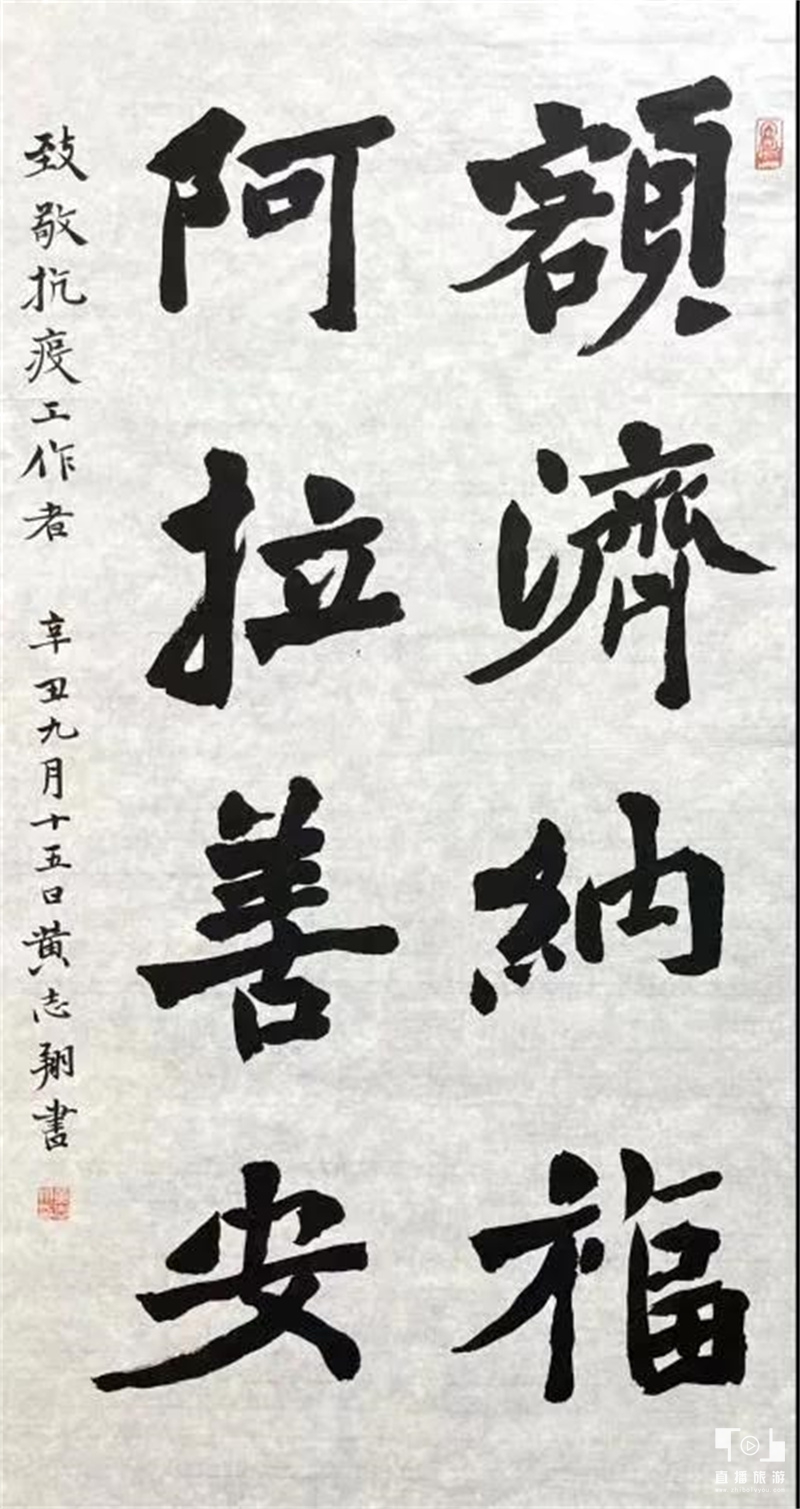 額濟納福
阿拉善安
致敬抗疫工作者 辛丑九月十五日黄志翔書
直播旅游